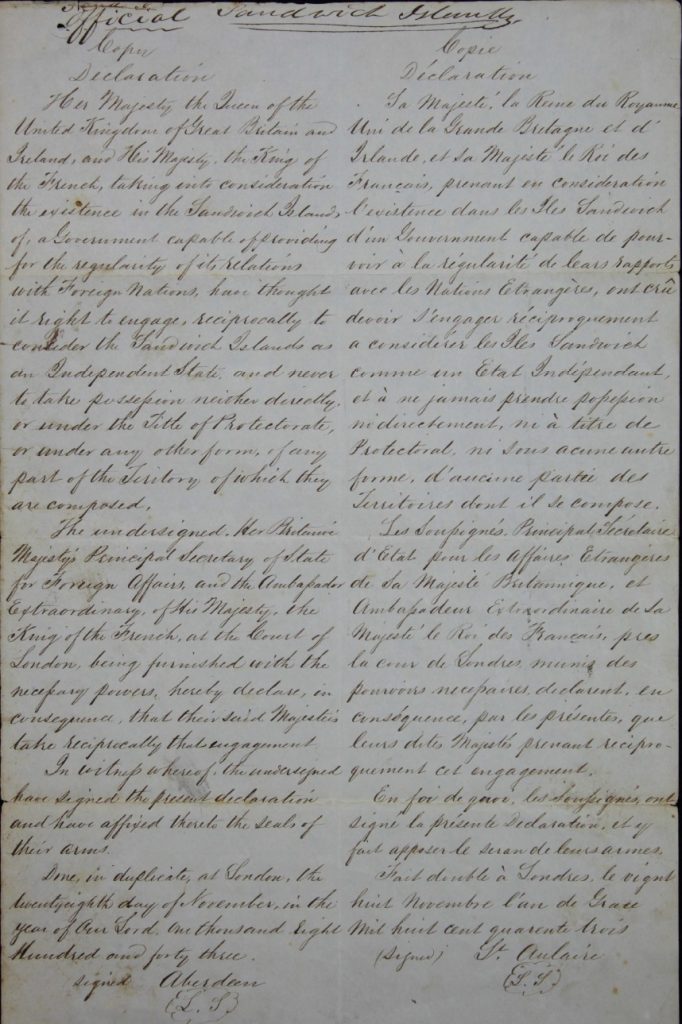 Official Sandwich Islands
Copy
Declaration
Her Majesty the Queen of the
United Kingdom of Great Britain and
Ireland, and His Majesty, the King of
the French, taking into consideration
the existence in the Sandwich Islands,
of, a Government capable of providing
for the regularity of its relations
with Foreign Nations, have thought
it right to engage, reciprocally to
consider the Sandwich Islands as
an Independent State, and never
to take possession neither directly,
or under the Title of Protectorate,
or under any other form, of any
part of the Teritory of which they
are composed.
The undersigned, Her Britanic
Majesty's Principal Secretary of State
for Foreign Affairs, and the Ambasador
Extraordinary, of His Majesty, the
King of the French, at the Court of
London, being furnished with the
necessary powers, hereby declare, in
consequence, that their said Majesties
take reciprocally that engagement
In witness whereof, the undersigned
have signed the present declaration
and have affixed thereto the seals of
their arms.
Done, in duplicate, at London, the
twenty eighth day of November, in the
year of Our Lord, one thousand eight
Hundred and forty three.
signed Aberdeen
(L. S)
Copie
Déclaration
Sa Majesté, la Reine du Royaume
Uni de la Grande Bretagne et d'
Irlande, et Sa Majesté le Roi des
Français, prenant en considération
l'existence dans les Iles Sandwich
d'un Gouvernment capable de pour-
voir à la régularité de leurs rapports
avec les Nations Etrangères, ont crû
devoir s'engager réciproquement
a considérer les Iles Sandwich
comme un Etat Indépendant,
et à ne jamais prendre possession
ni directement, ni à titre de
Protectorat, ni sous acune autre
forme, d'aucune partie des
Territoires dont il se compose.
Les Soussignés, Principal Secretaire
d'Etat pour les Affaires Etrangères
de Sa Majesté Britannique, et
Ambassadeur Extraordinaire de Sa
Majesté le Roi des Français, pres
la cour de Londres, munis des
pouvoirs necessaires, declarent, en
conséquence, par les présentes, que
leurs dites Majestés prenant récipro-
quement cet engagement.
En foi de quoi, les Soussignés, ont
signé la présente Declaration, et y
fait apposer le sceau de leurs armes.
Fait double à Londres, le vignt
huit Novembre l'an de Grace
Mil huit cent quarente trois
(Signed) St. Aulaire
(L. S)